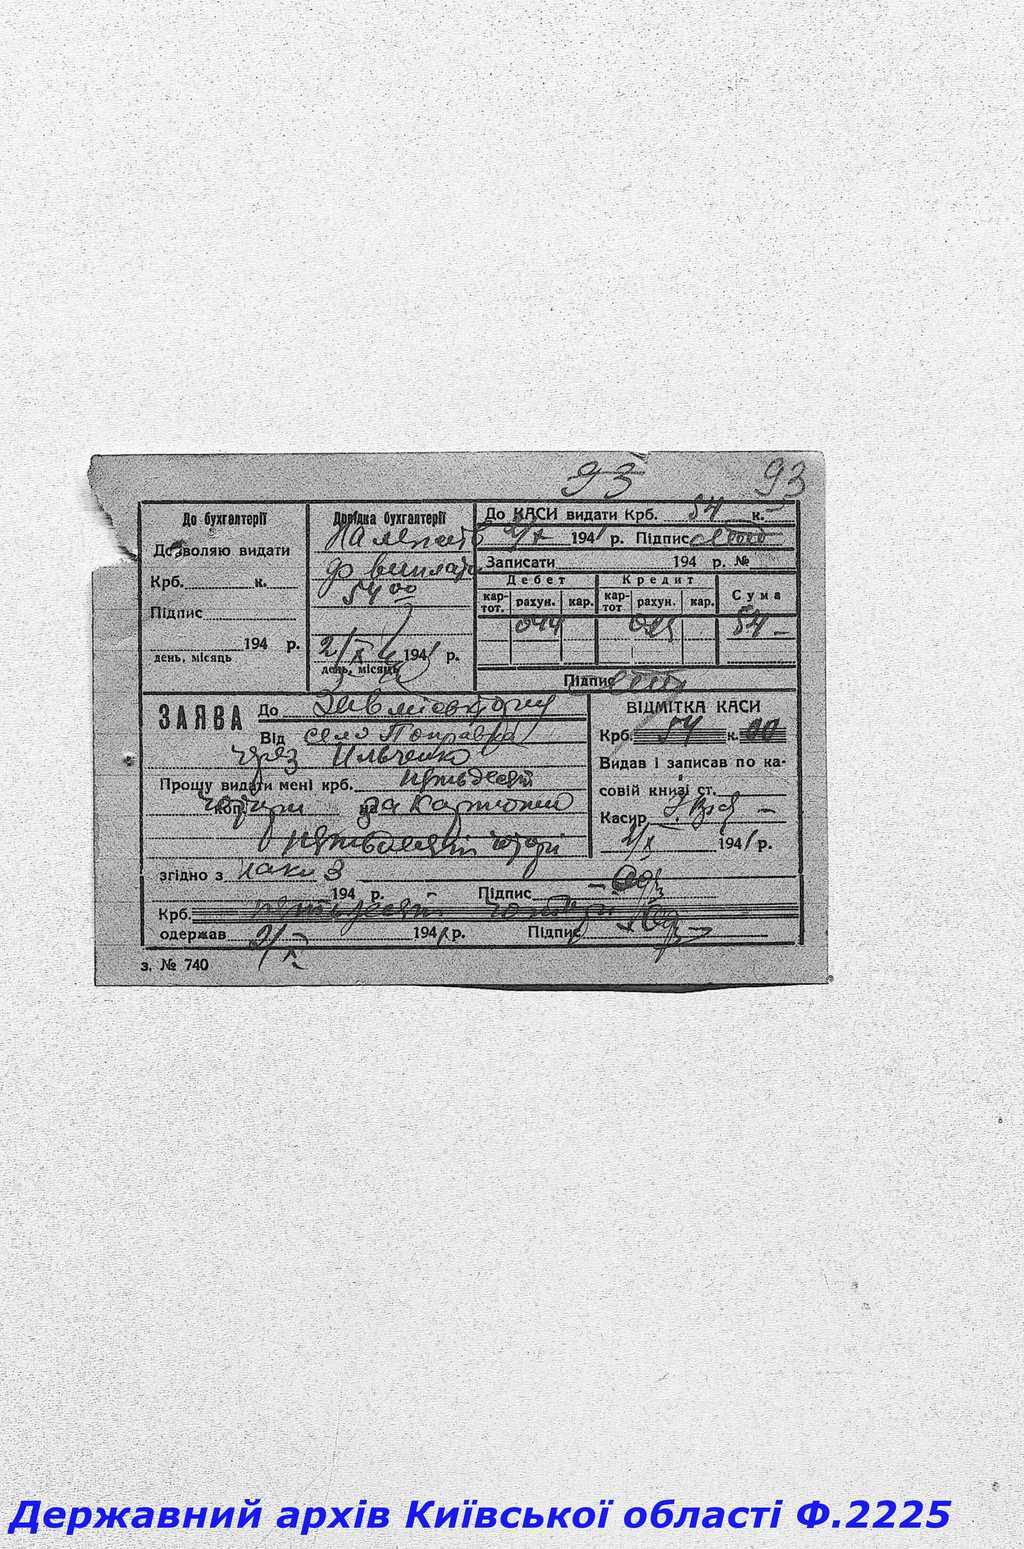 93 93
До бухгалтерії
Дозволяю видати
Крб. к.
Підпис
194 р.
день, місяць
Довідка бухгалтерії
54 00
2/X 1941 р.
день, місяць
До КАСИ видати Крб. 54 к. –
2/X 1941 р. Підпис
Записати 194 р. №
Дебет Кредит Сума
кар-тот. рахун. кар. кар-тот рахун. кар.
044 54 –
Підпис
ЗАЯВА
До
Від село Поправка
через Ильченко
Прошу видати мені крб. пятьдесят
чотири коп. на за
пятьдесят чотири
згідно з
194 р. Підпис
Крб. пятьдесят чотири
одержав 2/X 1941 р. Підпис
ВІДМІТКА КАСИ
Крб. 54 к. 00
Видав і записав по ка-
совій книзі ст.
Касир
2/X 1941 р.
з. № 740
Державний архів Київської області Ф.2225